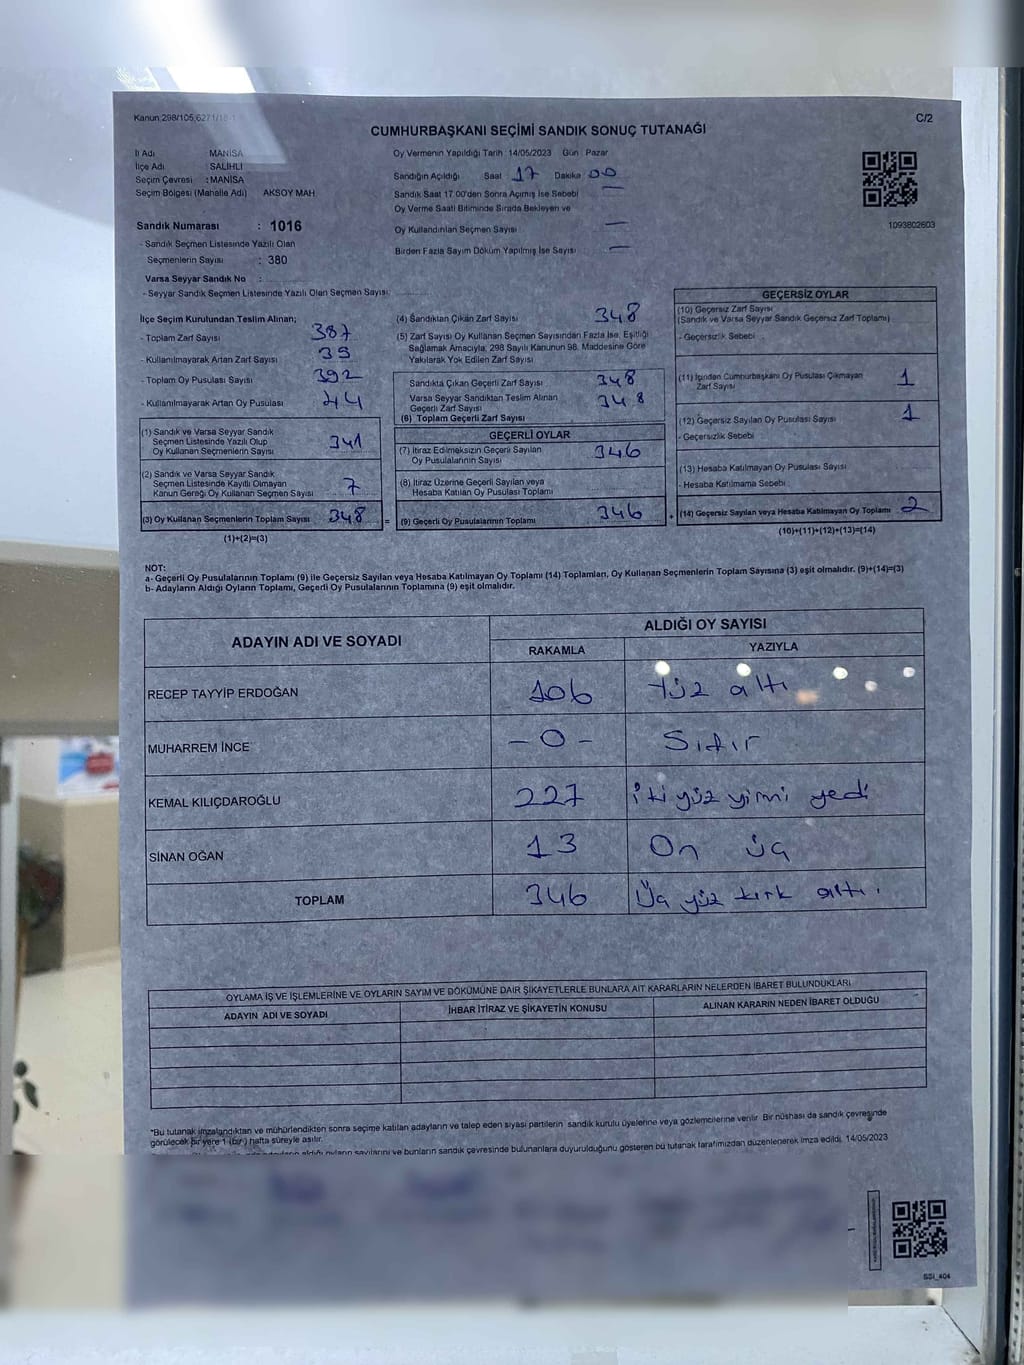 Kanun;298/105,6271/18-1
C/2
CUMHURBAŞKANI SEÇİMİ SANDIK SONUÇ TUTANAĞI
İl Adı : MANİSA
İlçe Adı : SALİHLİ
Seçim Çevresi : MANİSA
Seçim Bölgesi (Mahalle Adı) AKSOY MAH.
Sandık Numarası : 1016
- Sandık Seçmen Listesinde Yazılı Olan
Seçmenlerin Sayısı : 380
Varsa Seyyar Sandık No :
- Seyyar Sandık Seçmen Listesinde Yazılı Olan Seçmen Sayısı:
Oy Vermenin Yapıldığı Tarih 14/05/2023 Gün: Pazar
Sandığın Açıldığı Saat 17 Dakika 00
Sandık Saat 17.00'den Sonra Açımış İse Sebebi —
Oy Verme Saati Bitiminde Sırada Bekleyen ve
Oy Kullandırılan Seçmen Sayısı —
Birden Fazla Sayım Döküm Yapılmış İse Sayısı —
1093802603
İlçe Seçim Kurulundan Teslim Alınan;
- Toplam Zarf Sayısı 387
- Kullanılmayarak Artan Zarf Sayısı 39
- Toplam Oy Pusulası Sayısı 392
- Kullanılmayarak Artan Oy Pusulası 44
(1) Sandık ve Varsa Seyyar Sandık
Seçmen Listesinde Yazılı Olup
Oy Kullanan Seçmenlerin Sayısı 341
(2) Sandık ve Varsa Seyyar Sandık
Seçmen Listesinde Kayıtlı Olmayan
Kanun Gereği Oy Kullanan Seçmen Sayısı 7
(3) Oy Kullanan Seçmenlerin Toplam Sayısı 348 =
(1)+(2)=(3)
(4) Sandıktan Çıkan Zarf Sayısı 348
(5) Zarf Sayısı Oy Kullanan Seçmen Sayısından Fazla İse, Eşitliği
Sağlamak Amacıyla, 298 Sayılı Kanunun 98. Maddesine Göre
Yakılarak Yok Edilen Zarf Sayısı
Sandıkta Çıkan Geçerli Zarf Sayısı 348
Varsa Seyyar Sandıktan Teslim Alınan
Geçerli Zarf Sayısı 348
(6) Toplam Geçerli Zarf Sayısı
GEÇERLİ OYLAR
(7) İtiraz Edilmeksizin Geçerli Sayılan
Oy Pusulalarının Sayısı 346
(8) İtiraz Üzerine Geçerli Sayılan veya
Hesaba Katılan Oy Pusulası Toplamı
(9) Geçerli Oy Pusulalarının Toplamı 346 +
GEÇERSİZ OYLAR
(10) Geçersiz Zarf Sayısı
(Sandık ve Varsa Seyyar Sandık Geçersiz Zarf Toplamı)
- Geçersizlik Sebebi
(11) İçinden Cumhurbaşkanı Oy Pusulası Çıkmayan
Zarf Sayısı 1
(12) Geçersiz Sayılan Oy Pusulası Sayısı 1
- Geçersizlik Sebebi
(13) Hesaba Katılmayan Oy Pusulası Sayısı
- Hesaba Katılmama Sebebi
(14) Geçersiz Sayılan veya Hesaba Katılmayan Oy Toplamı 2
(10)+(11)+(12)+(13)=(14)
NOT:
a- Geçerli Oy Pusulalarının Toplamı (9) ile Geçersiz Sayılan veya Hesaba Katılmayan Oy Toplamı (14) Toplamları, Oy Kullanan Seçmenlerin Toplam Sayısına (3) eşit olmalıdır. (9)+(14)=(3)
b- Adayların Aldığı Oyların Toplamı, Geçerli Oy Pusulalarının Toplamına (9) eşit olmalıdır.
ADAYIN ADI VE SOYADI
ALDIĞI OY SAYISI
RAKAMLA YAZIYLA
RECEP TAYYİP ERDOĞAN 106 Yüz altı
MUHARREM İNCE - 0 - Sıfır
KEMAL KILIÇDAROĞLU 227 İki yüz yirmi yedi
SİNAN OĞAN 13 On üç
TOPLAM 346 Üç yüz kırk altı.
OYLAMA İŞ VE İŞLEMLERİNE VE OYLARIN SAYIM VE DÖKÜMÜNE DAİR ŞİKAYETLERLE BUNLARA AİT KARARLARIN NELERDEN İBARET BULUNDUKLARI
ADAYIN ADI VE SOYADI İHBAR İTİRAZ VE ŞİKAYETİN KONUSU ALINAN KARARIN NEDEN İBARET OLDUĞU
*Bu tutanak imzalandıktan ve mühürlendikten sonra seçime katılan adayların ve talep eden siyasi partilerin sandık kurulu üyelerine veya gözlemcilerine verilir. Bir nüshası da sandık çevresinde
görülecek bir yere 1 (bir) hafta süreyle asılır.
aldığı oyların sayılarını ve bunların sandık çevresinde bulunanlara duyurulduğunu gösteren bu tutanak tarafımızdan düzenlenerek imza edildi. 14/05/2023
SSI_404